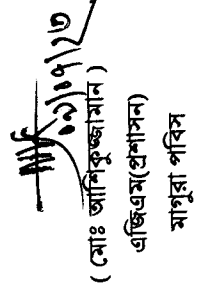 ( মোঃ আশিকুজ্জামান )
এজিএম(প্রশাসন)
মাগুরা পবিস